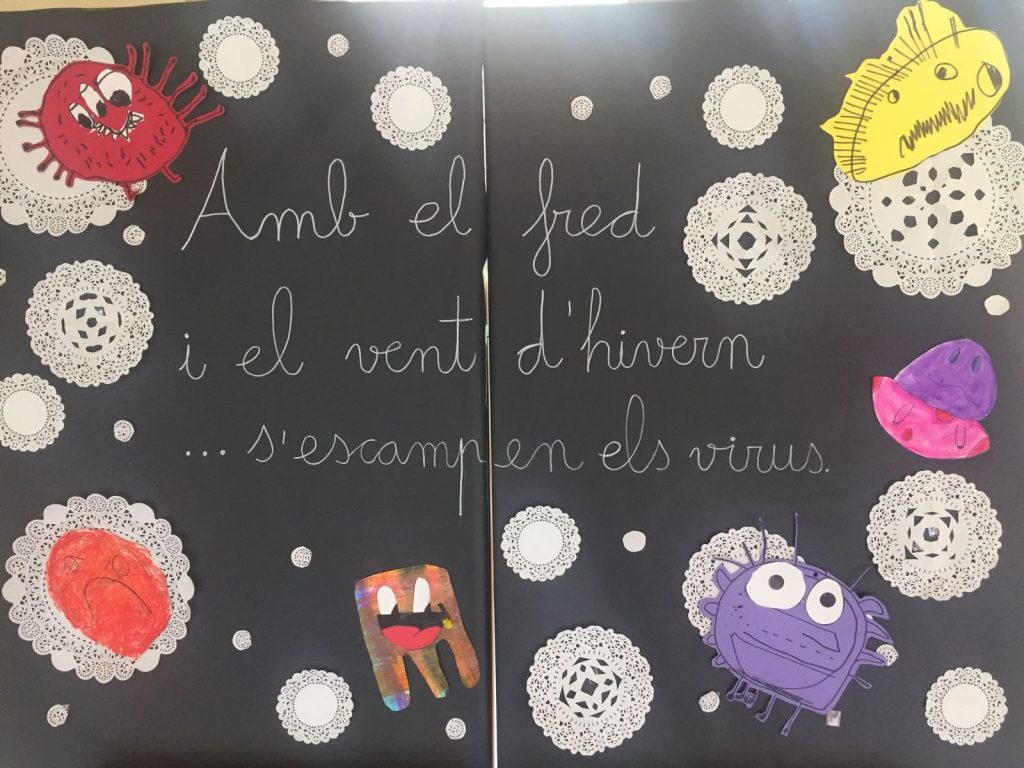 Amb el fred
i el vent d'hivern
... s'escampen els virus.